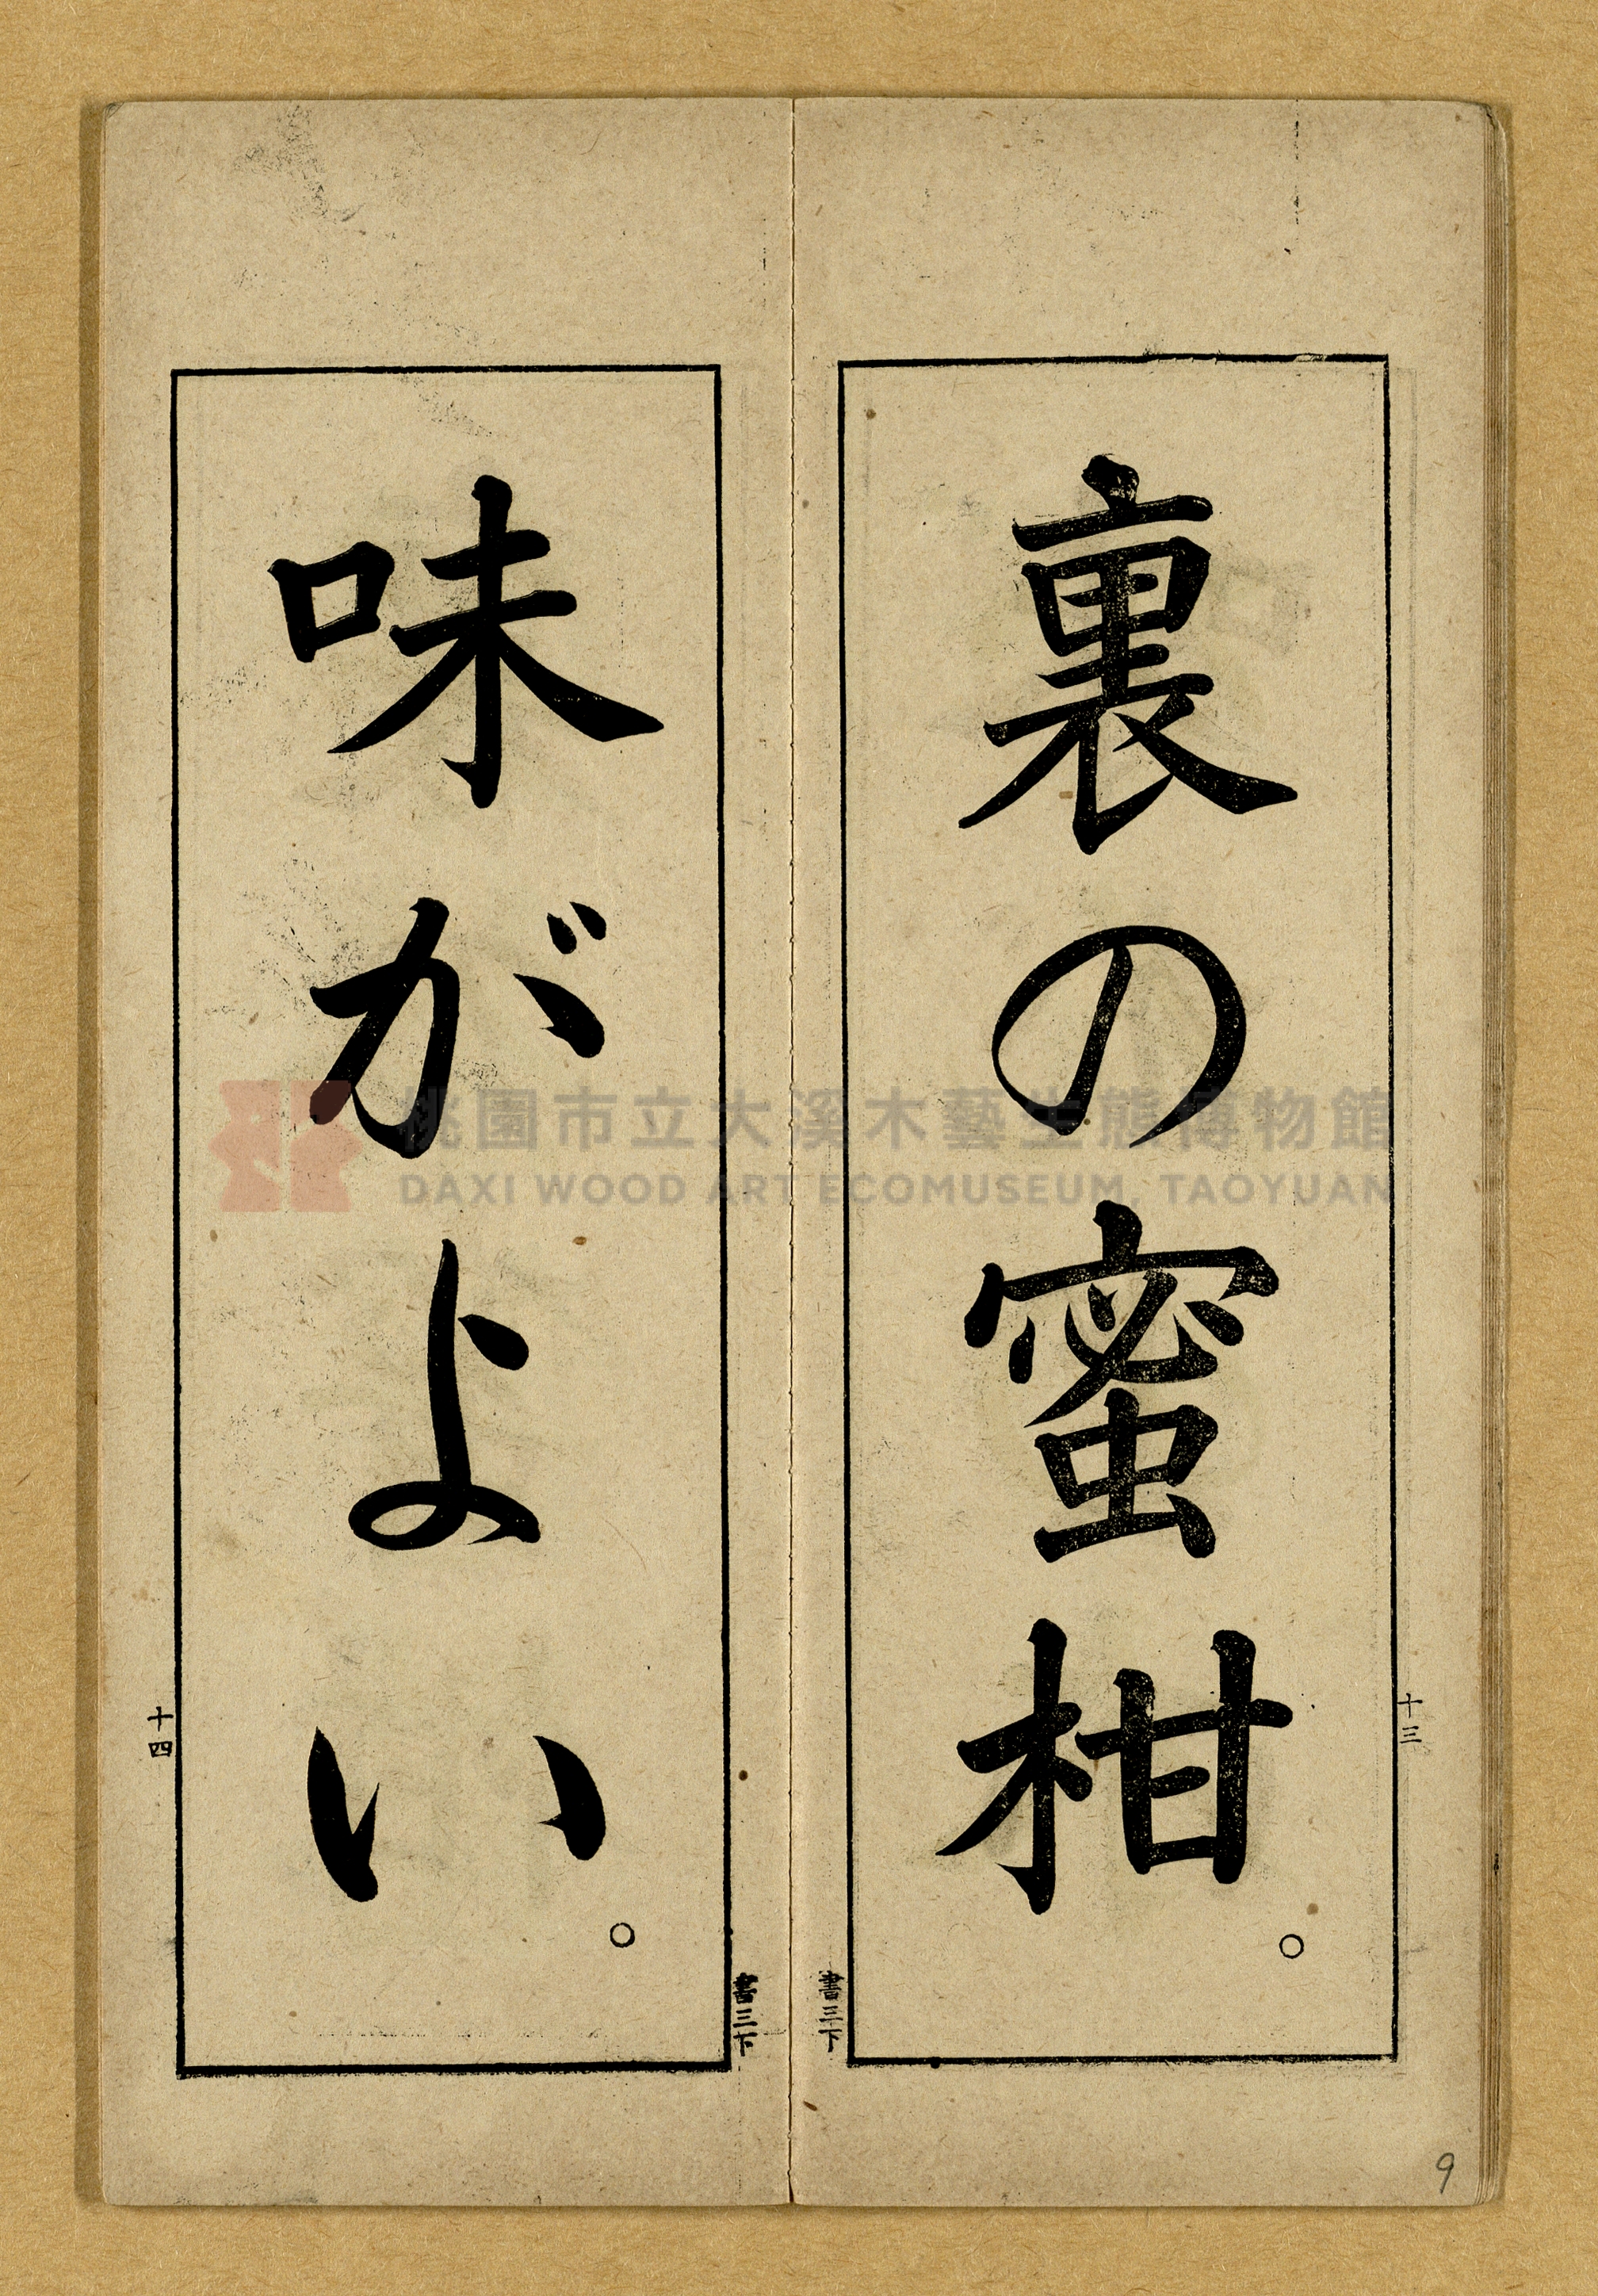 裏の蜜柑。
十三
味がよい。
十四
桃園市立大溪木藝生態博物館
DAXI WOOD ART ECOMUSEUM, TAOYUAN
9